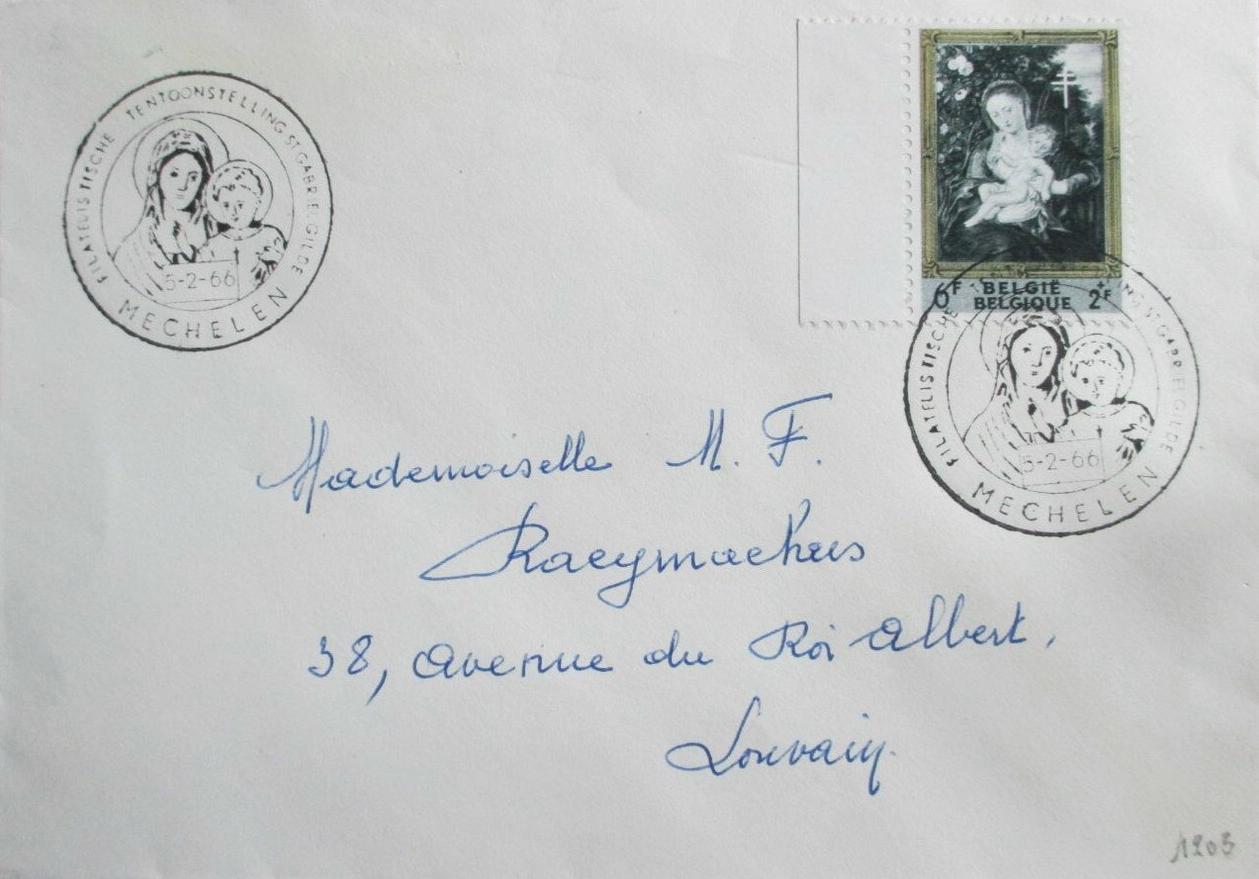 FILATELISTISCHE TENTOONSTELLING ST GABRIEL GILDE
5-2-66
MECHELEN
6F BELGIË 2+F
BELGIQUE
FILATELISTISCHE NG ST GABRIEL GILDE
5-2-66
MECHELEN
Mademoiselle M. F.
Raeymaekers
38, avenue du Roi Albert,
Louvain.
1203